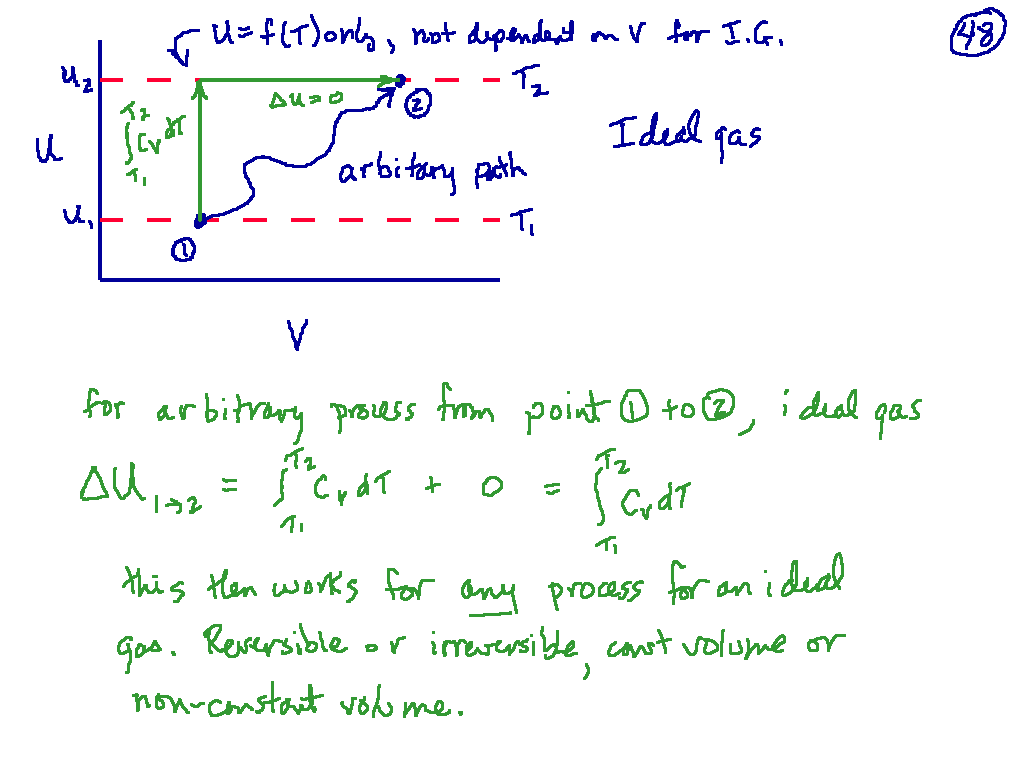 U = f(T) only, not dependent on V for I.G.
48
U₂
T₂
ΔU = 0
②
∫_{T₁}^{T₂} Cᵥ dT
Ideal gas
U
arbitary path
U₁
T₁
①
V
for arbitrary process from point ① to ②, ideal gas
ΔU₁→₂ = ∫_{T₁}^{T₂} Cᵥ dT + 0 = ∫_{T₁}^{T₂} Cᵥ dT
this then works for any process for an ideal
gas. Reversible or irreversible, const volume or
non-constant volume.